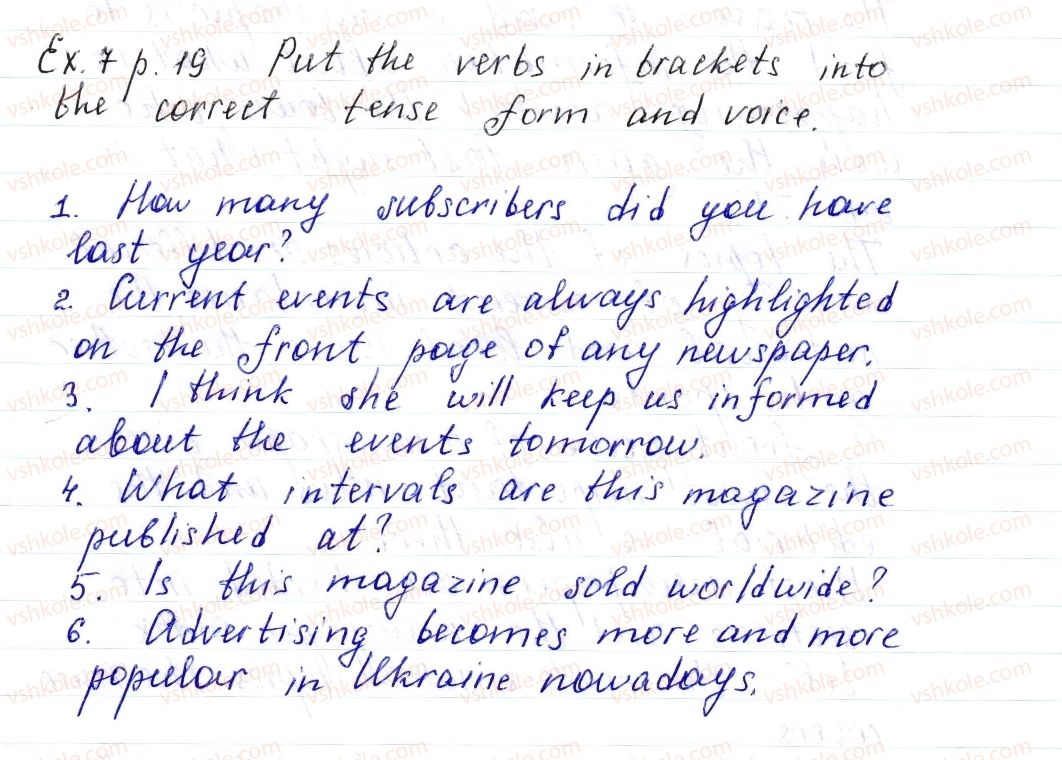 Ex. 7 p. 19 Put the verbs in brackets into
the correct tense form and voice.
1. How many subscribers did you have
last year?
2. Current events are always highlighted
on the front page of any newspaper.
3. I think she will keep us informed
about the events tomorrow.
4. What intervals are this magazine
published at?
5. Is this magazine sold worldwide?
6. Advertising becomes more and more
popular in Ukraine nowadays.